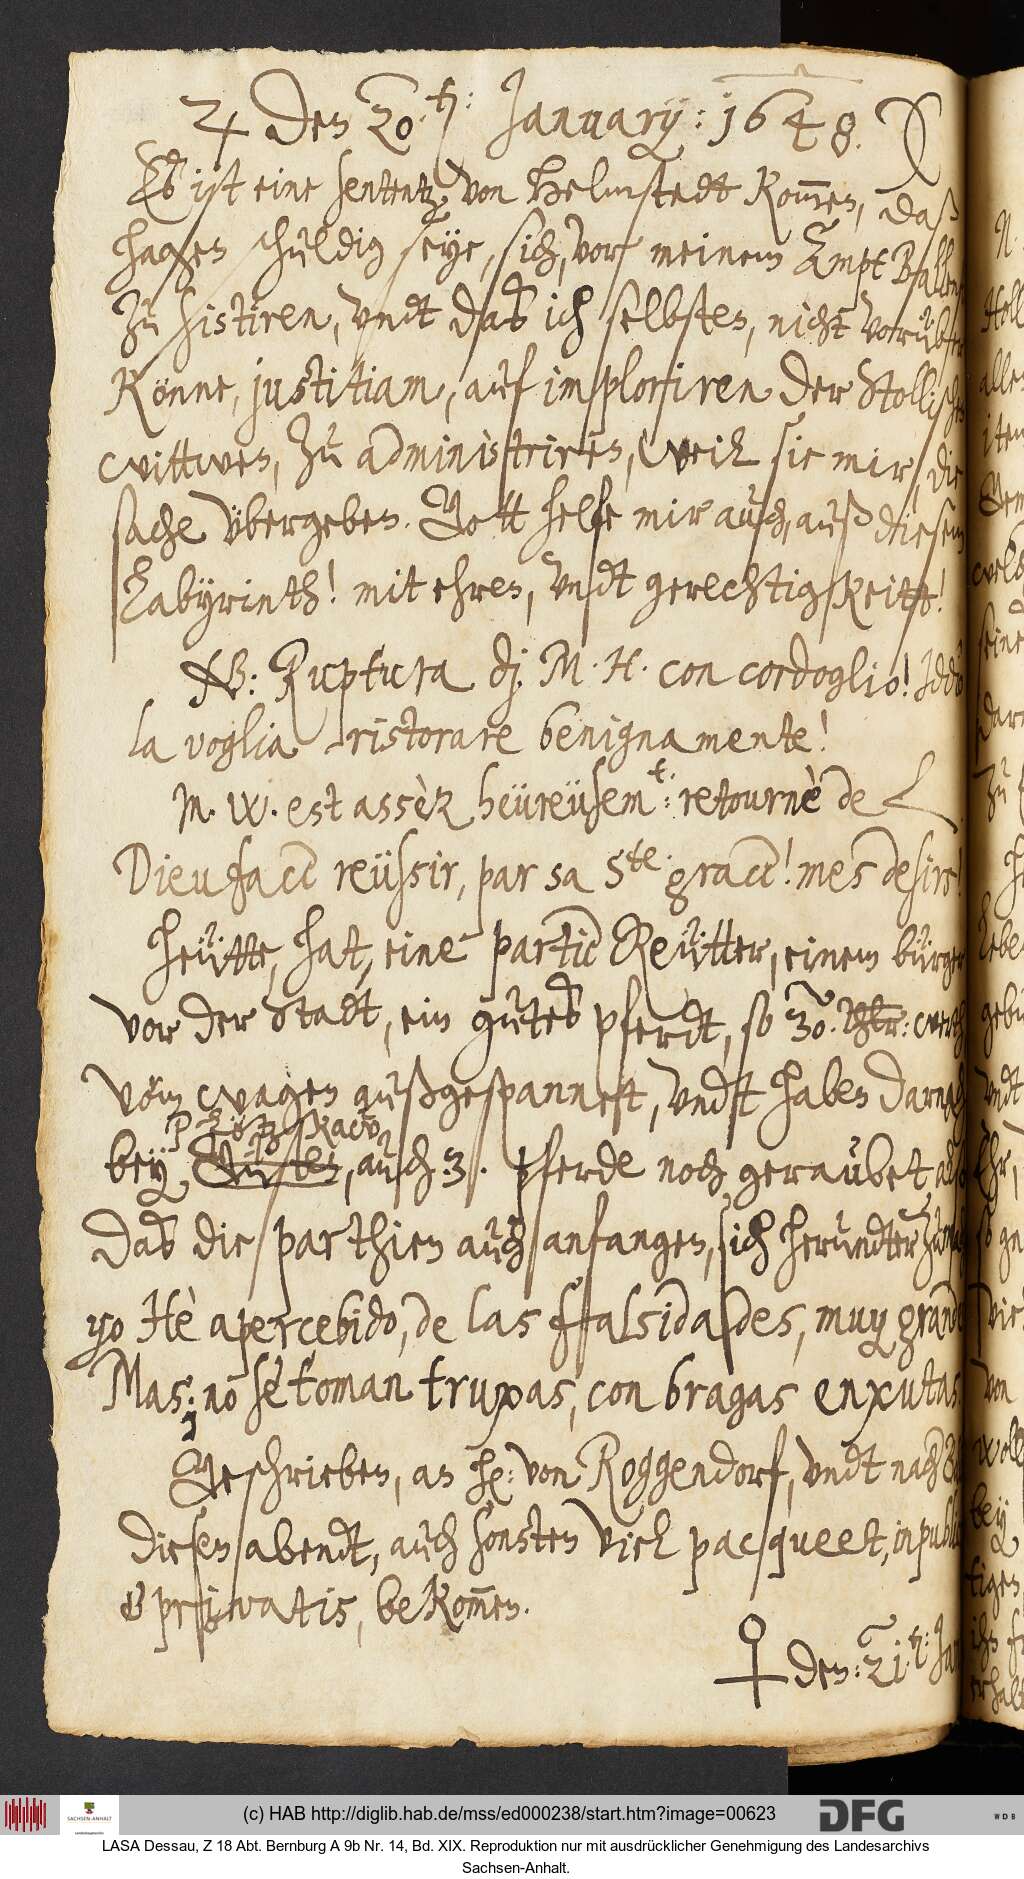 ♃ Den 20.th: January: 1648.
Es ist eine sententz von Helmstedt kom̅en, daß
Hagen schuldig seye, sich, vor meinem Ampt Ballen
zu sistiren, undt daß ich selbsten, nicht vorüber
könne, justitiam, auf imploriren der Stollischen
wittwen, zu administriren, weil sie mir, die
sache übergeben. Gott helfe mir auch, auß diesem
Labyrinth! mit ehren, undt gerechtigkeitt!
NB: Ruptura dj M. H. con cordoglio! Iddio
la voglia ristorare benignamente!
M. W. est assèz heüreüsem.t: retournè de L
Dieu face reüssir, par sa S.te grace! mes desirs!
Heütte, hat, eine partie Reütter, einem bürger
vor der Stadt, ein gutes pferdt, so 30. Thlr: werth
vom wagen außgespannet, undt haben darnach
bey Plötzkaw, auch 3. pferde noch geraubet also
daß die parthien auch anfangen, sich herundter zu
yo Hè apercebido, de las ffalsidades, muy grandes
Mas; no se toman truxas, con bragas enxutas.
Geschrieben, an H: von Roggendorf, undt nach
Diesen abendt, auch sonsten viel pacqueet, in publicis
& privatis, bekom̅en.
♀ den: 21.th: Jan
(c) HAB http://diglib.hab.de/mss/ed000238/start.htm?image=00623
SACHSEN-ANHALT
DFG
WDB
LASA Dessau, Z 18 Abt. Bernburg A 9b Nr. 14, Bd. XIX. Reproduktion nur mit ausdrücklicher Genehmigung des Landesarchivs
Sachsen-Anhalt.